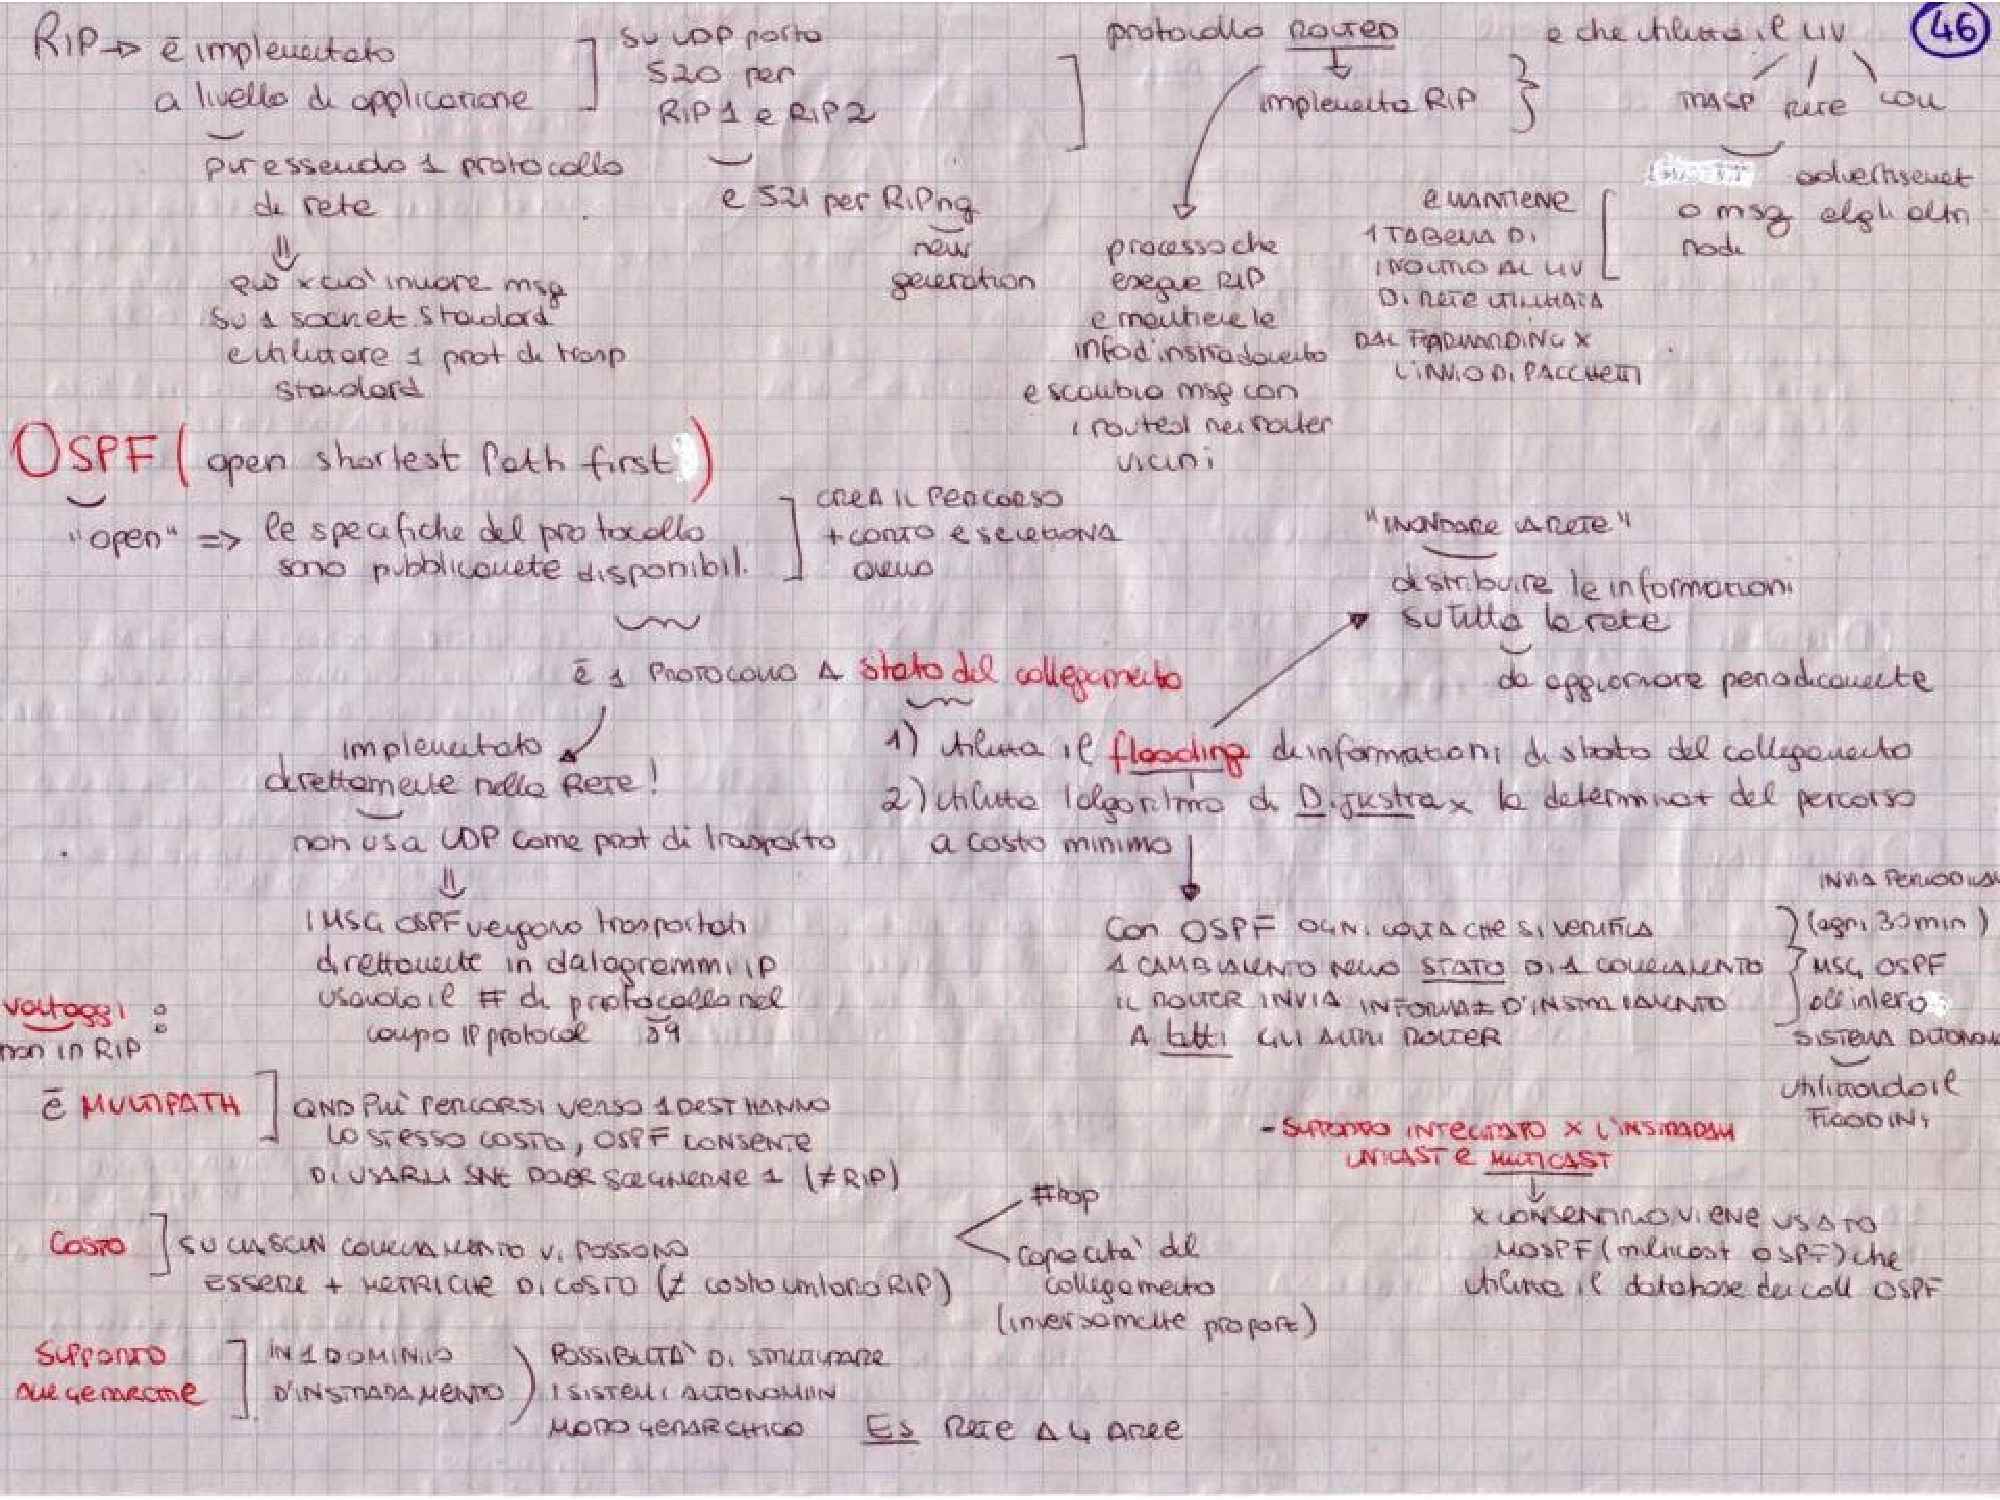 46
RIP → è implementato
a livello di applicazione
pur essendo 1 protocollo
di rete
può x ciò inviare msg
su 1 socket standard
e utilizzare 1 prot di trasp
standard
su UDP porta
520 per
RIP 1 e RIP 2
e 521 per RIPng
new
generation
protocollo ROUTED
implementa RIP
processo che
esegue RIP
e mantiene le
info d'instradamento
e scambia msg con
i routed nei router
vicini
e che utilizza il liv
TRASP RETE COLL
advertisement
o msg agli altri
nodi
E MANTIENE
1 TABELLA DI
INOLTRO AL LIV
DI RETE UTILIZZATA
DAL FORWARDING X
L'INVIO DI PACCHETTI
OSPF (open shortest Path first)
"open" => le specifiche del protocollo
sono pubblicamente disponibili
CREA IL PERCORSO
+ CORTO E SELEZIONA
QUELLO
"INONDARE LA RETE"
distribuire le informazioni
su tutta la rete
da aggiornare periodicamente
è 1 PROTOCOLLO A stato del collegamento
implementato
direttamente nella RETE!
non usa UDP come prot di trasporto
i MSG OSPF vengono trasportati
direttamente in datagrammi IP
usando il # di protocollo nel
campo IP protocol 89
1) utilizza il flooding di informazioni di stato del collegamento
2) utilizza l'algoritmo di Dijkstra x la determinaz del percorso
a costo minimo
Con OSPF OGNI VOLTA CHE SI VERIFICA
1 CAMBIAMENTO NELLO STATO DI 1 COLLEGAMENTO
IL ROUTER INVIA INFORMAZ D'INSTRADAMENTO
A tutti GLI ALTRI ROUTER
INVIA PERIODICAM
(ogni 30 min)
MSG OSPF
all'intero
SISTEMA AUTONOM
utilizzando il
FLOODING
vantaggi :
non in RIP
è MULTIPATH
QND PIÙ PERCORSI VERSO 1 DEST HANNO
LO STESSO COSTO, OSPF CONSENTE
DI USARLI SNZ DOVER SCEGLIERNE 1 (≠ RIP)
COSTO
SU CIASCUN COLLEGAMENTO VI POSSONO
ESSERE + METRICHE DI COSTO (≠ costo unitario RIP)
#hop
capacità del
collegamento
(inversamente proporz)
- SUPPORTO INTEGRATO X L'INSTRADAM
UNICAST E MULTICAST
X CONSENTIRLO VIENE USATO
MOSPF (multicast OSPF) che
utilizza il database dei coll OSPF
SUPPORTO
ALLE GERARCHIE
IN 1 DOMINIO
D'INSTRADAMENTO
POSSIBILITÀ DI STRUTTURARE
I SISTEMI AUTONOMI IN
MODO GERARCHICO
ES RETE A 4 AREE